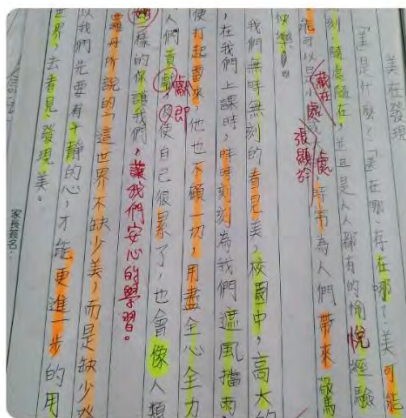 美在發現
「美是什麼?」「美在哪?存在哪?美可能
刻、隨處隨在,並且是人人都有的愉悅經驗
能可以是小處
藏在
張顯於
時常為人們帶來
快樂。
我們無時無刻的看見美,校園中,高大的
,在我們上課時,時時刻刻為我們遮風擋雨
便打起雷來,他也不顧一切,用盡全心全力
人們貢獻,即使自己很累了,也會像人類
樣的保護我們,讓我們安心的學習。
羅丹所說的:「這世界不缺少美,而是缺少發
以我們先要有干靜的心,才能更進一步的用
世界,去看見、發現美。
家長簽名: